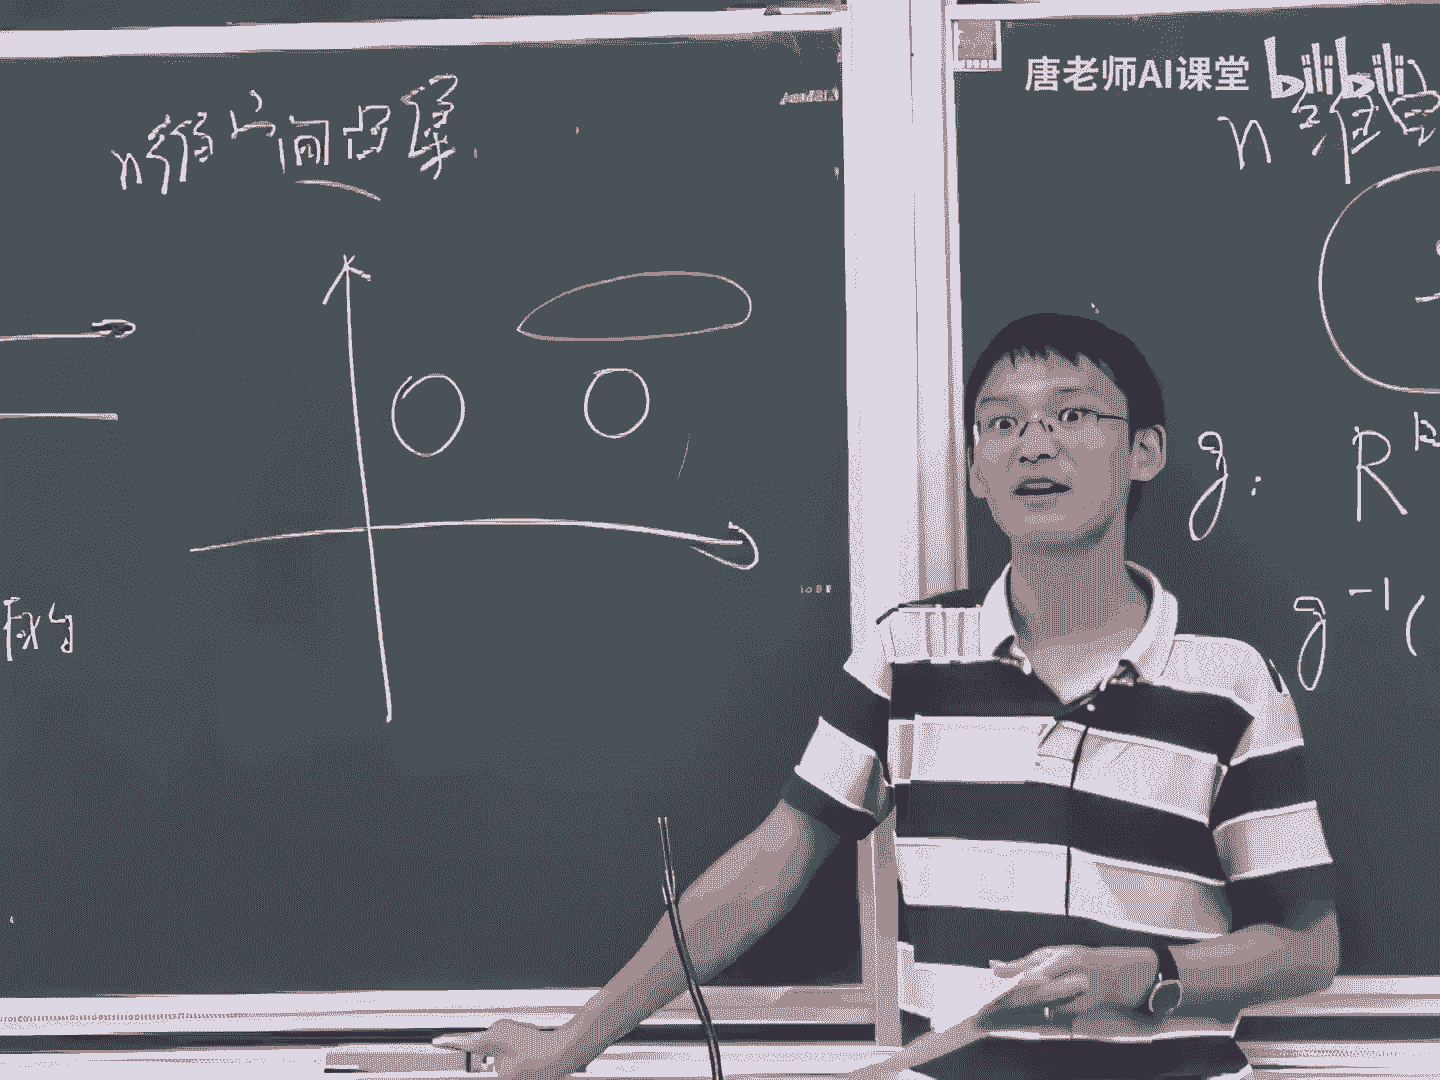 n维空间凸集
唐老师AI课堂 bilibili
n维空
g: R
g⁻¹(